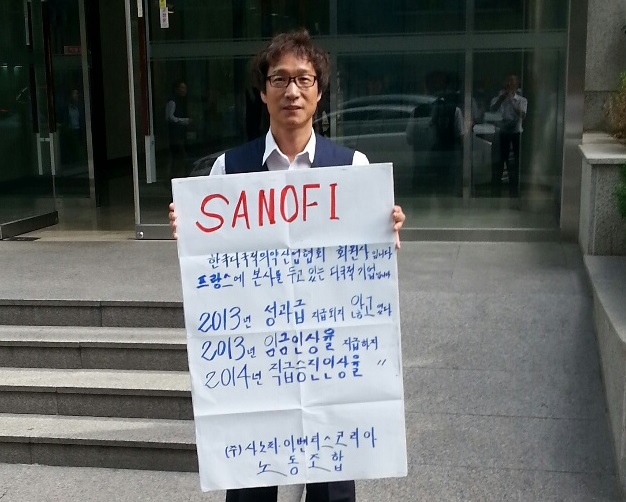 SANOFI
한국다국적의약산업협회 회원사입니다
프랑스에 본사를 두고 있는 다국적기업입니다
2013년 성과급 지급되지 않고 있다
2013년 임금인상율 지급하지
2014년 직급승진인상율 〃
(주)사노피-아벤티스코리아
노동조합